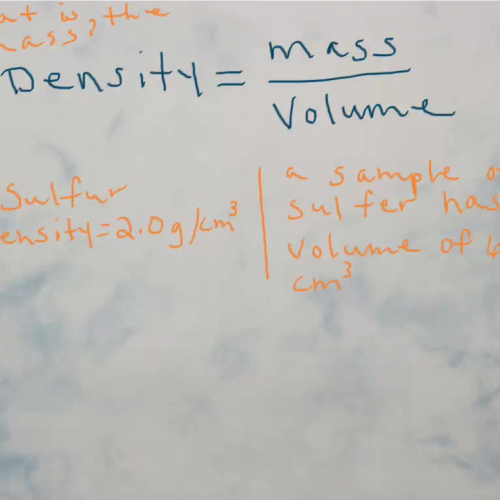 at is, the
mass?
Density = mass
Volume
Sulfur
ensity=2.0g/cm³
a sample o
sulfer has
volume of
cm³